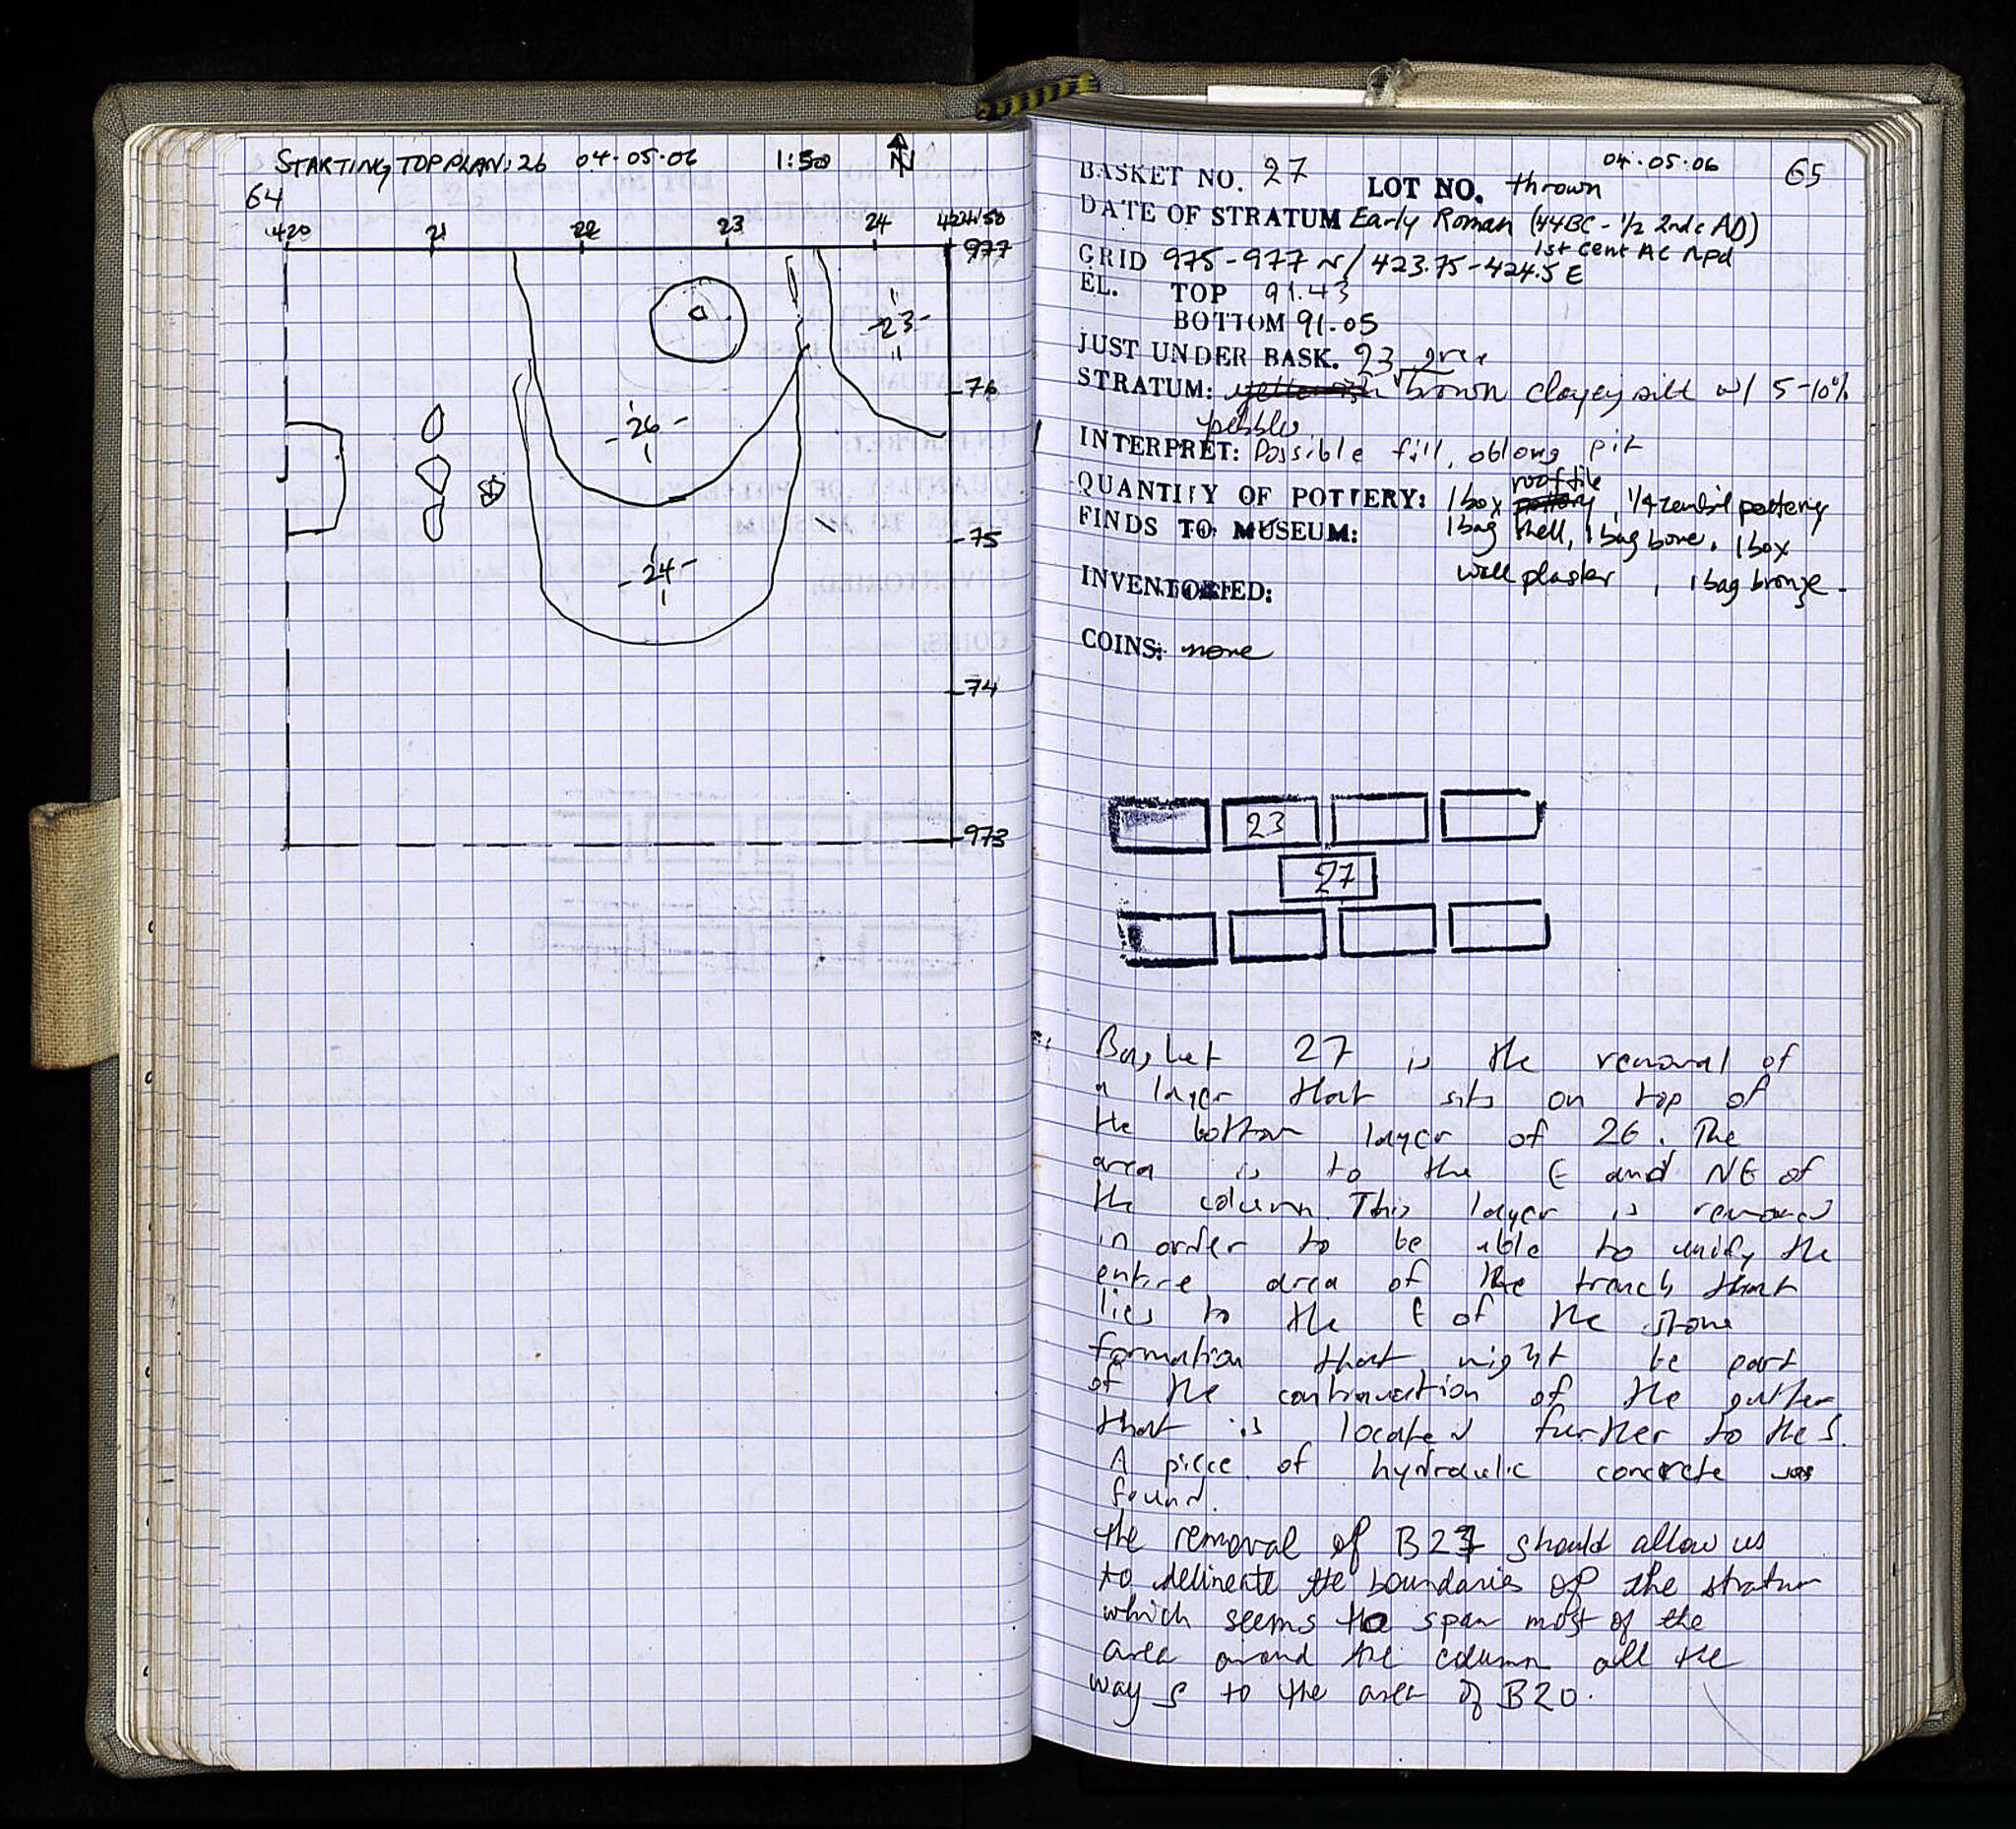 STARTING TOP PLAN: 26 04·05·06 1:50 N
64
420 21 22 23 24 424.50
977
-23-
76
-26-
75
-24-
74
973
04·05·06 65
BASKET NO. 27 LOT NO. thrown
DATE OF STRATUM Early Roman (44BC - 1/2 2nd c AD)
1st cent AC npd
GRID 975-977 N/423.75-424.5 E
EL. TOP 91.43
BOTTOM 91.05
JUST UNDER BASK. 23
STRATUM: yellowish brown clayey silt w/ 5-10%
pebbles
INTERPRET: Possible fill, oblong pit
roof tile
QUANTITY OF POTTERY: 1 box pottery, 1/4 zembil pottery
FINDS TO MUSEUM: 1 bag shell, 1 bag bone, 1 box
wall plaster, 1 bag bronze.
INVENTORIED:
COINS: none
23
27
Basket 27 is the removal of
a layer that sits on top of
the bottom layer of 26. The
area is to the E and NE of
the column. This layer is removed
in order to be able to unify the
entire area of the trench that
lies to the E of the stone
formation that might be part
of the continuation of the gutter
that is located further to the S.
A piece of hydraulic concrete was
found.
the removal of B27 should allow us
to delineate the boundaries of the stratum
which seems to span most of the
area around the column all the
way S to the area of B20.